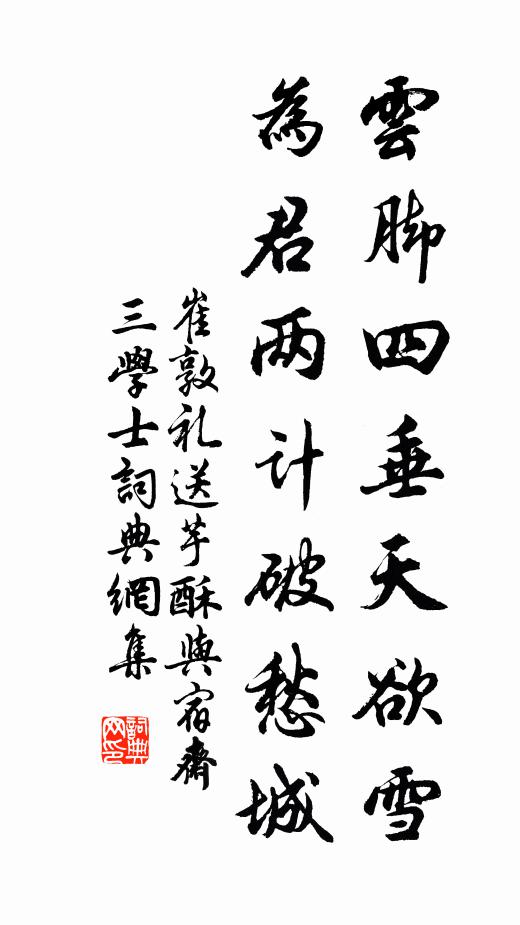 雲脚四垂天欲雪
為君两計破愁城
崔敦礼送芋酥與宿齋
三學士詞典網集
詞典网印